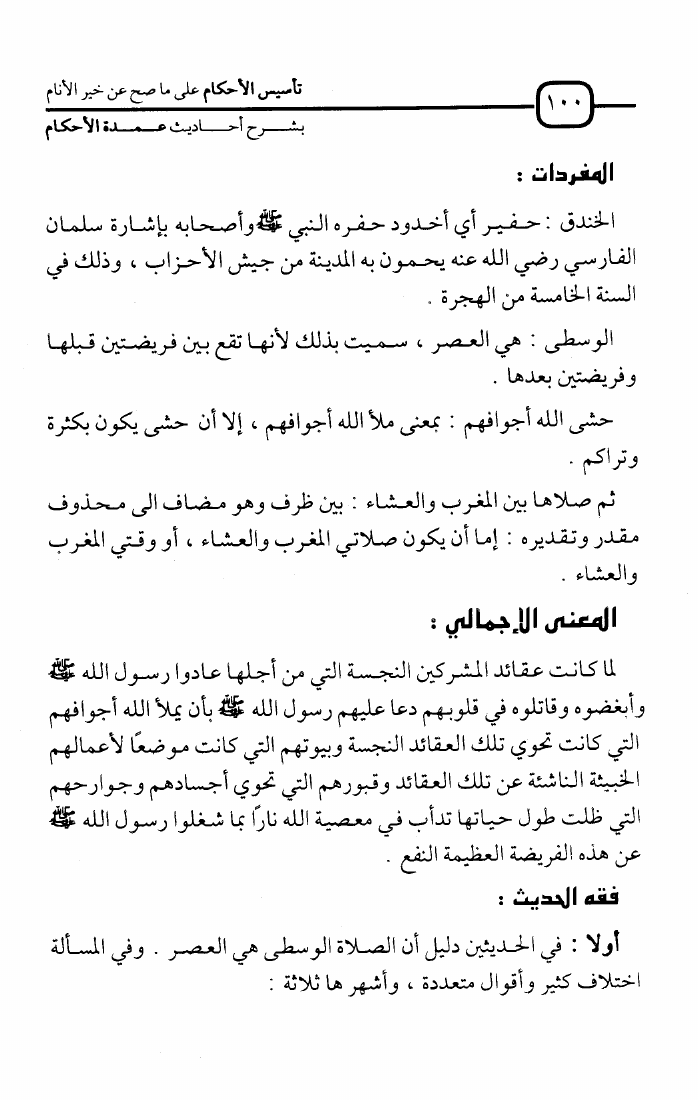 تأسيس الأحكام على ما صح عن خير الأنام
١٠٠
بشرح أحاديث عمدة الأحكام
المفردات :
الخندق : حفير أي أخدود حفره النبي ﷺ وأصحابه بإشارة سلمان
الفارسي رضي الله عنه يحمون به المدينة من جيش الأحزاب ، وذلك في
السنة الخامسة من الهجرة .
الوسطى : هي العصر ، سميت بذلك لأنها تقع بين فريضتين قبلها
وفريضتين بعدها .
حشى الله أجوافهم : بمعنى ملأ الله أجوافهم ، إلا أن حشى يكون بكثرة
وتراكم .
ثم صلاها بين المغرب والعشاء : بين ظرف وهو مضاف الى محذوف
مقدر وتقديره : إما أن يكون صلاتي المغرب والعشاء ، أو وقتي المغرب
والعشاء .
المعنى الإجمالي :
لما كانت عقائد المشركين النجسة التي من أجلها عادوا رسول الله ﷺ
وأبغضوه وقاتلوه في قلوبهم دعا عليهم رسول الله ﷺ بأن يملأ الله أجوافهم
التي كانت تحوي تلك العقائد النجسة وبيوتهم التي كانت موضعًا لأعمالهم
الخبيثة الناشئة عن تلك العقائد وقبورهم التي تحوي أجسادهم وجوارحهم
التي ظلت طول حياتها تدأب في معصية الله نارًا بما شغلوا رسول الله ﷺ
عن هذه الفريضة العظيمة النفع .
فقه الحديث :
أولا : في الحديثين دليل أن الصلاة الوسطى هي العصر . وفي المسألة
اختلاف كثير وأقوال متعددة ، وأشهر ها ثلاثة :